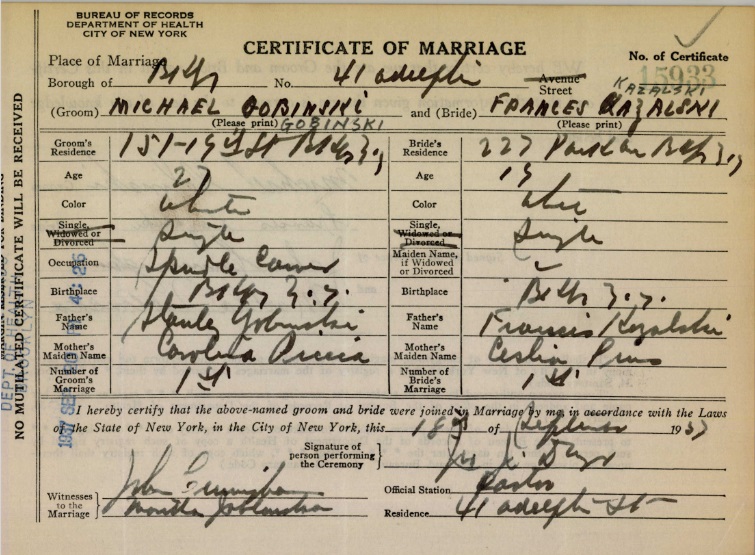 BUREAU OF RECORDS
DEPARTMENT OF HEALTH
CITY OF NEW YORK
CERTIFICATE OF MARRIAGE
No. of Certificate
15933
Place of Marriage
Borough of Bklyn No. 41 Adelphi Avenue Street
KAZALSKI
(Groom) MICHAEL GOBINSKI and (Bride) FRANCES KAZALSKI
(Please print) GOBINSKI (Please print)
Groom's Residence 151-19th St Bklyn N.Y. Bride's Residence 227 Bklyn N.Y.
Age 27 Age 19
Color White Color White
Single, Widowed or Divorced Single Single, Widowed or Divorced Single
Occupation Spindle Maiden Name, if Widowed or Divorced
Birthplace Bklyn N.Y. Birthplace Bklyn N.Y.
Father's Name Stanley Gobinski Father's Name Francis Kozalski
Mother's Maiden Name Carolina Mother's Maiden Name
Number of Groom's Marriage 1st Number of Bride's Marriage 1st
I hereby certify that the above-named groom and bride were joined in Marriage by me, in accordance with the Laws
of the State of New York, in the City of New York, this 18th of September 1937
Signature of person performing the Ceremony
Official Station Pastor
Witnesses to the Marriage John
Residence 41 Adelphi St
NO MUTILATED CERTIFICATE WILL BE RECEIVED
DEPT. OF HEALTH
BROOKLYN